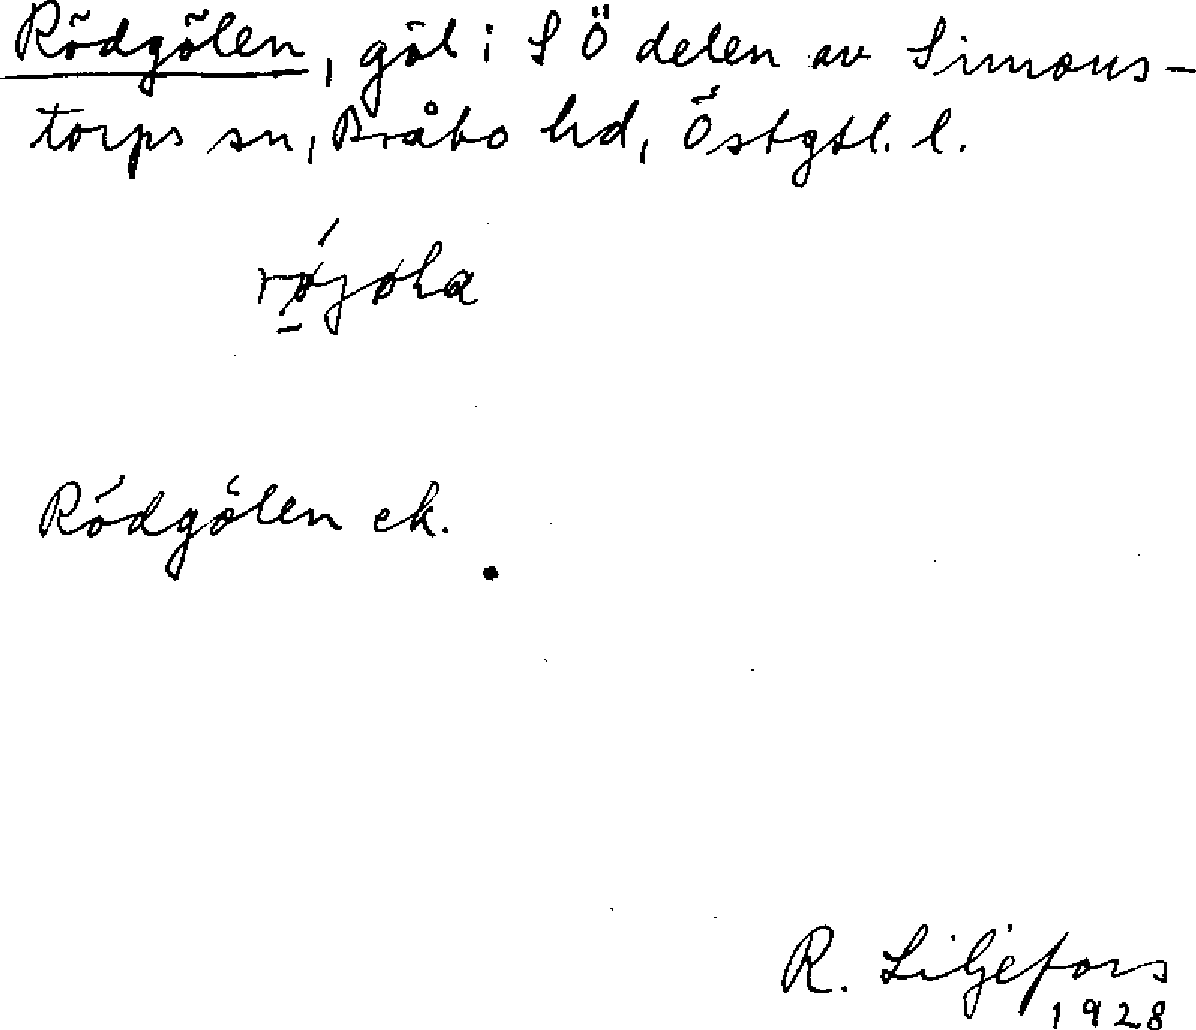 Rödgölen, göl i S Ö delen av Simons-
torps sn, Bråbo hd, Östgtl. l.
Rödgölen ek.
R. Liljefors
1928